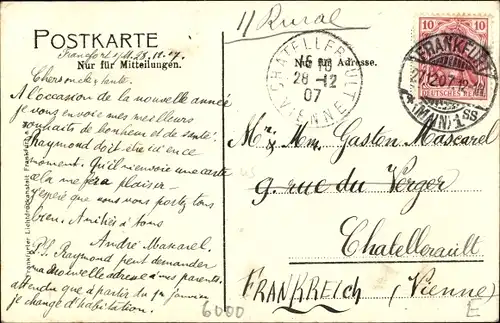 POSTKARTE
Nur für Mitteilungen.
Francfort s/M. 28. 12. 07.
Chers oncle & tante.
A l'occasion de la nouvelle année
je vous envoie mes meilleurs
souhaits de bonheur et de santé.
Raymond doit être ici en ce
moment. Qu'il m'envoie une carte
cela me fera plaisir.
J'espère que vous vous portez tous
bien. Amitiés à tous
André
P.S. Raymond peut demander
ma nouvelle adresse à mes parents,
attendu que à partir du 1er janvier
je change d'habitation.
Frankfurter Lichtdruckanstalt
// Rural
Nur für Adresse.
CHATELLERAULT
28 -12
07
VIENNE
10
DEUTSCHES REICH
FRANKFURT
27.12.07
(MAIN) 1
Mr. & Mme. Gaston Mascarel
9. rue du Verger
Chatellerault
FRANKREICH (Vienne)
6000
E